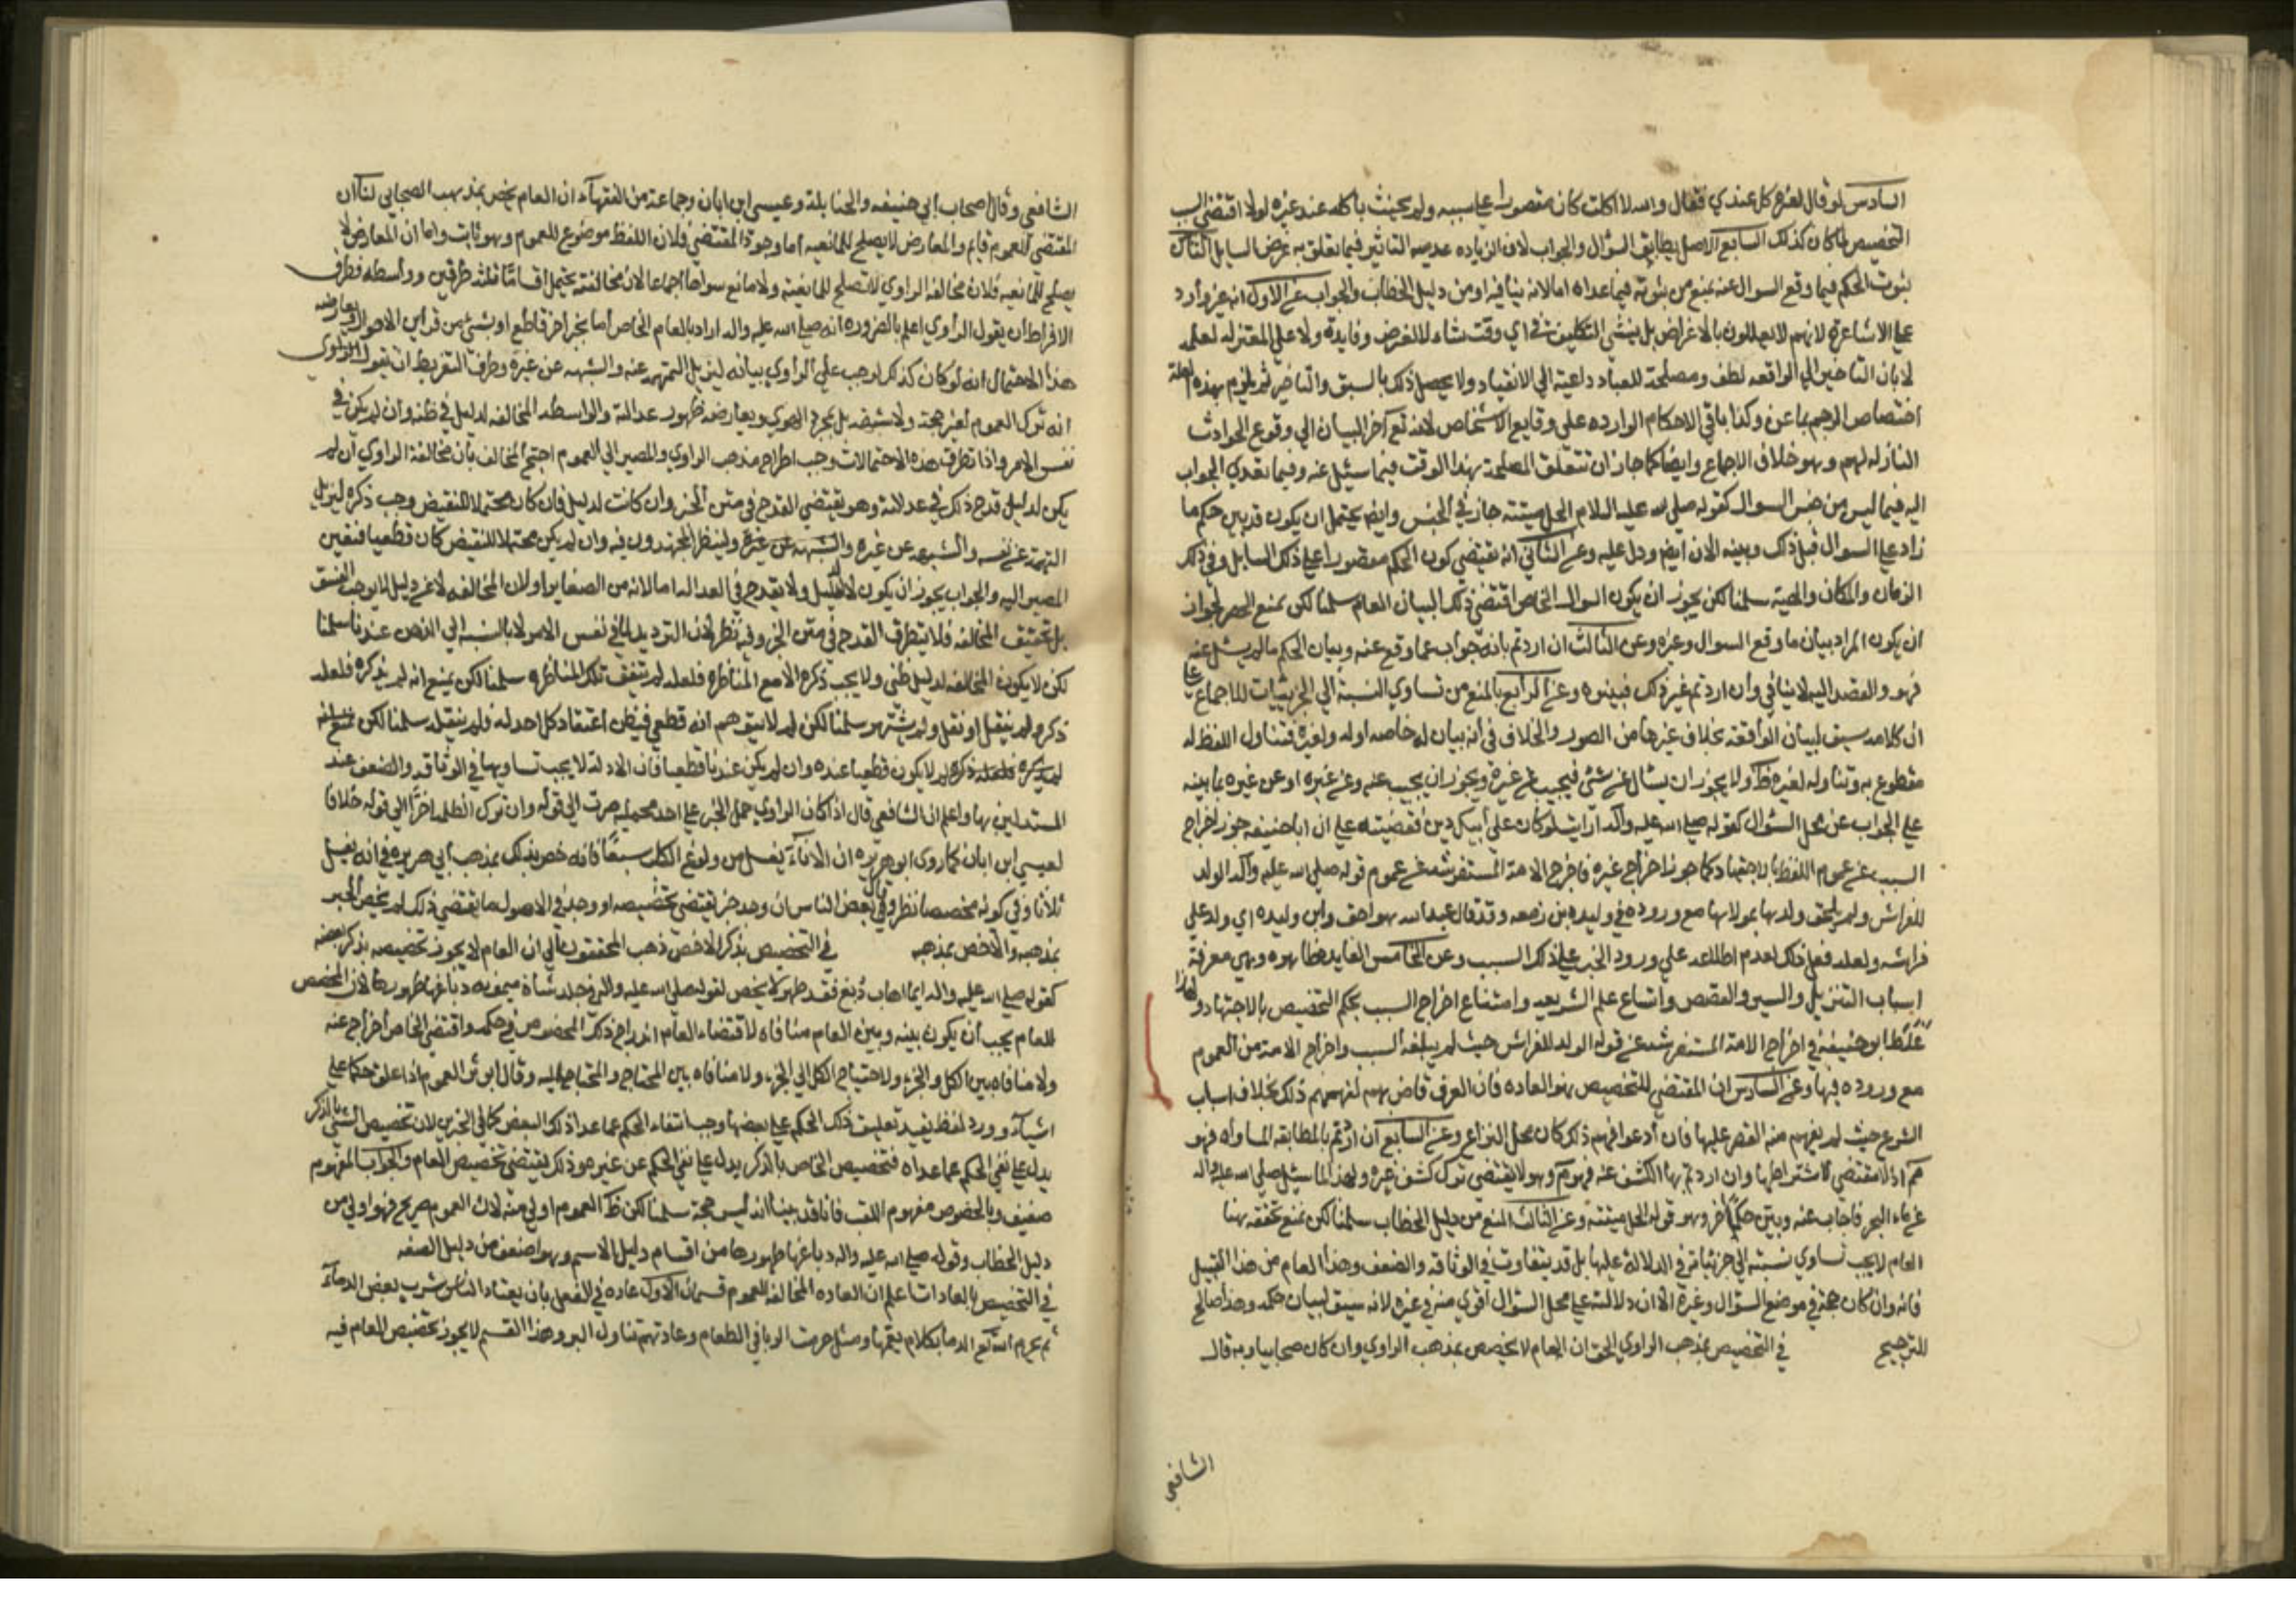 السادس لو قال لغيره كل عندي فقال والله لا اكلت كان مقصورا على سببه ولم يحنث باكله عند غيره لولا اقتضى السبب
التخصيص لما كان كذلك السابع الاصل يطابق السؤال والجواب لان الزياده عديمه التاثير فيما تعلق به غرض السايل الثامن
ثبوت الحكم فيما وقع السوال عنه يمنع من ثبوته فيما عداه اما لانه ينافيه او من دليل الخطاب والجواب عن الاول انه غير وارد
على الاشاعرة لانهم لا يعللون بالاغراض بل ينشئ التكليف في اي وقت شاء لا لغرض وفايدة ولا على المعتزله لعلمه
لا بان التاخير الى الواقعه لطف ومصلحة للعباد داعية الى الانقياد ولا يحصل ذلك بالسبق والتاخير ثم يلزم بهذه العلة
اختصاص الرجم بماعز وكذا باقي الاحكام الوارده على وقايع الاشخاص لانه تع اخر البيان الي وقوع الحوادث
النازله لهم وهو خلاف الاجماع وايضا كما جاز ان تتعلق المصلحة بهذا الوقت فيما سيئل عنه وفيما تعدي الجواب
اليه فيما ليس من جنس السوال كقوله صلى الله عليه السلام الحل ميتته جاز في الجنس وايض يحتمل ان يكون قد بين حكم ما
زاد على السوال قبل ذلك وبينه الان ايض ودل عليه وعن الثاني انه يقتضي كون الحكم مقصورا على ذلك السايل وفي ذلك
الزمان والمكان والهيئة سلمنا لكن يجوز ان يكون السوال الخاص اقتضى ذلك البيان العام سلمنا لكن نمنع الحصر لجواز
ان يكون المراد بيان ما وقع السوال وغيره وعن الثالث ان اردتم بانه جواب عما وقع عنه وبيان الحكم ما لم يسئل عنه
فهو والقصد اليه لا ينافي وان اردتم غير ذلك فبينوه وعن الرابع بالمنع من تساوي النسبة الي الجزييات للاجماع على
ان كلامه سيق لبيان الواقعه بخلاف غيرها من الصور والخلاف في انه بيان له خاصه او له ولغيره فتناول اللفظ له
مقطوع به وتناوله لغيره ظ ولا يجوز ان يسال عن شئ فيجيب عن غيره ويجوز ان يجيب عنه وعن غيره او عن غيره بما ينبه
على الجواب عن محل السؤال كقوله صلى الله عليه واله ارايت لو كان على ابيك دين فقضيته على ان ابا حنيفه جوز اخراج
السبب عن عموم اللفظ بالاجتهاد كما جوز اخراج غيره فاخرج الامة المستفرشه عن عموم قوله صلى الله عليه واله الولد
للفراش ولم يلحق ولدها بمولاها مع وروده في وليده بن زمعه وقد قال عبد الله هو اخي وابن وليده ابي ولد على
فراشه ولعله فعل ذلك لعدم اطلاعه علي ورود الخبر على ذلك السبب وعن الخامس الفايده ظاهره وهي معرفة
اسباب التنزيل والسير والقصص واتساع علم الشريعه وامتناع اخراج السبب بحكم التخصيص بالاجتهاد ولهذا
غلط ابو حنيفة في اخراج الامة المستفرشه عن قوله الولد للفراش حيث لم يبلغه السبب واخراج الامة من العموم
مع وروده فيها وعن السادس ان المقتضي للتخصيص هو العاده فان العرف قاض بهم لفهمهم ذلك بخلاف اسباب
الشرع حيث لم يفهم منه القصر عليها فان ادعوا فهم ذلك كان محل النزاع وعن السابع ان اردتم بالمطابقه المساواه فهو
مم اذ لا مقتضي لاشتراطها وان اردتم بها الكشف عنه فهو مم وهو لا يقتضي ترك كشف غيره ولهذا لما سيئل صلى الله عليه واله
عن ماء البحر فاجاب عنه وبين حكما اخر وهو قوله الحل ميتته وعن الثالث المنع من دليل الخطاب سلمنا لكن نمنع تحققه هنا
العام لا يجب تساوي نسبته الى جزئياته في الدلالة عليها بل قد يتفاوت في الوثاقه والضعف وهذا العام من هذا القبيل
فانه وان كان حجة في موضع السؤال وغيره الا ان دلالته على محل السؤال اقوي منه في غيره لانه سيق لبيان حكمه وهذا صالح
للترجيح في التخصيص بمذهب الراوي الحق ان العام لا يخصص بمذهب الراوي وان كان صحابيا وبه قال
الشافعي
الشافعي وقال اصحاب ابي حنيفه والحنابلة وعيسى ابن ابان وجماعة من الفقهاء ان العام يخص بمذهب الصحابي لنا ان
المقتضي للعموم قايم والمعارض لا يصلح للمانعيه اما وجود المقتضي فلان اللفظ موضوع للعموم وهو ثابت واما ان المعارض لا
يصلح للمانعيه فلان مخالفه الراوي لا تصلح للمانعية ولا مانع سواها اجماعا لان مخالفته يحتمل اقساما ثلثه طرفين وواسطه فطرف
الافراط ان يقول الراوي اعلم بالضروره انه صلى الله عليه واله اراد بالعام الخاص اما بخبر اخر قاطع او بشئ من قراين الاحوال ويعارض
هذا الاحتمال انه لو كان كذلك لوجب على الراوي بيانه ليزيل التهمة عنه والشبهه عن غيره وطرف التفريط ان يقول الراوي
انه ترك العموم لغير حجة ولا شبهه بل بمجرد الهوى ويعارضه ظهور عدالته والواسطه المخالفه لدليل في ظنه وان لم يكن في
نفس الامر واذا تطرقت هذه الاحتمالات وجب اطراح مذهب الراوي والمصير الى العموم احتج المخالف بان مخالفة الراوي ان لم
يكن لدليل قدح ذلك في عدالته وهو يقتضي القدح في متن الخبر وان كانت لدليل فان كان محتملا للنقيض وجب ذكره ليزيل
التهمة عن نفسه والشبهه عن غيره ولينظر المجتهدون فيه وان لم يكن محتملا للنقيض كان قطعيا فتعين
المصير اليه والجواب يجوز ان يكون لا لدليل ولا يقدح في العداله اما لانه من الصغاير او لان المخالفه لا عن دليل لا يوجب الفسق
بل تحقق المخالفه فلا يتطرق القدح في متن الخبر وفيه نظر لان الترديد لنا في نفس الامر لا بالنسبه الي الذهن عندنا سلمنا
لكن لا يكون المخالفه لدليل ظني ولا يجب ذكره الا مع المناظره فلعله لم يتفق تلك المناظره سلمنا لكن نمنع انه لم يذكره فلعله
ذكره ولم ينقل او نقل ولم يشتهر سلمنا لكن لم لا يتوهم انه قطعي فيظن اعتقاد كل احد له فلم ينقله سلمنا لكن
لم يذكره فلعله ذكره لم لا يكون قطعيا عنده وان لم يكن عندنا قطعيا فان الادلة لا يجب تساويها في الوثاقه والضعف عند
المستدلين بها واعلم ان الشافعي قال اذا كان الراوي حمل الخبر على احد محمليه صرت الي قوله وان ترك الظاهر لم اصر الي قوله خلافا
لعيسى ابن ابان كما روى ابو هريره ان الاناء يغسل من ولوغ الكلب سبعا فانه خص بذلك بمذهب ابي هريره في انه يغسل
ثلاثا وفي كونه مخصصا نظر وقال بعض الناس ان وجد خبر يقتضي تخصيصه او وجد في الاصول ما يقتضي ذلك لم يخص الخبر
بمذهبه والا خص بمذهبه في التخصيص بذكر الاخص ذهب المحققون الى ان العام لا يجوز تخصيصه بذكر بعضه
كقوله صلى الله عليه واله ايما اهاب دبغ فقد طهر لا يخص لقوله صلى الله عليه واله في جلد شاة ميمونه دباغها طهورها لان المخصص
للعام يجب ان يكون بينه وبين العام منافاه لاقتضاء العام اندراج ذلك المخصوص في حكمه واقتضى الخاص اخراج عنه
ولا منافاه بين الكل والجزء ولاحتياج الكل الي الجزء ولا منافاه بين المحتاج والمحتاج اليه وقال ابو ثور العموم اذا علق حكما على
اشياء وورد لفظ يفيد تعليق ذلك الحكم على بعضها وجب انتفاء الحكم عما عدا ذلك البعض كما في الخبرين لان تخصيص الشئ بالذكر
يدل على نفي الحكم عما عداه فتخصيص الخاص بالذكر يدل على نفي الحكم عن غيره وذلك يقتضي تخصيص العام والجواب المفهوم
ضعيف وبالخصوص مفهوم اللقب فانا قد بينا انه ليس حجة سلمنا لكن ظ العموم اولي منه لان العموم صريح فهو اولي من
دليل الخطاب وقوله صلى الله عليه واله دباغها طهورها من اقسام دليل الاسم وهو اضعف من دليل الصفه
في التخصيص بالعادات اعلم ان العاده المخالفه للعموم قسمان الاول عاده في الفعل بان يعتاد الناس شرب بعض الدماء
ثم يحرم الله تع الدما بكلام يعمها ومثل حرمت الربا في الطعام وعادتهم تناول البر وهذا القسم لا يجوز تخصيص العام فيه